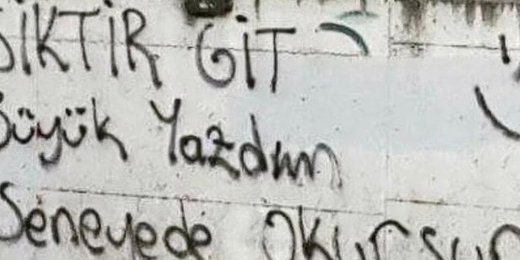 SİKTİR GİT
Büyük Yazdım
Seneyede okursun